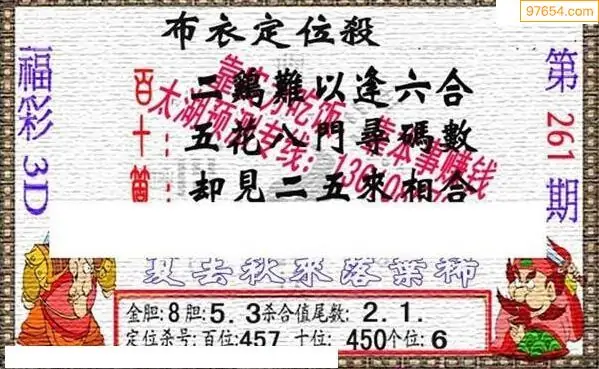 97654.com
布衣定位殺
福彩3D
第261期
百 二鷄難以逢六合
十 五花八門尋碼數
却見二五來相合
靠实力吃饭 靠本事赚钱
太湖预测专线:
夏去秋來落葉稀
金胆:8胆:5.3杀合值尾数:2.1.
定位杀号:百位:457 十位:450个位:6